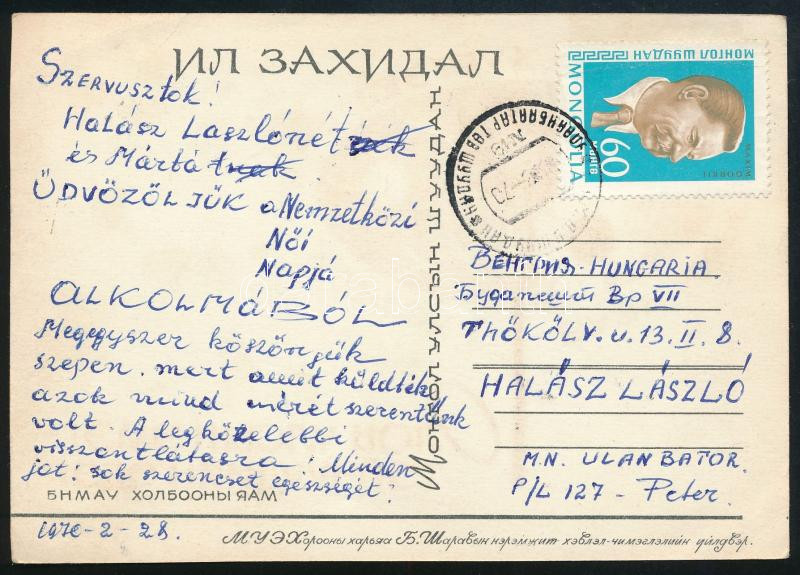 ИЛ ЗАХИДАЛ
SZERVUSZTOK!
HaLÁsz Laszlónét
és Mártát
ÜDVÖZÖLJÜK a Nemzetközi
Női
Napjá
ALKOLMÁBÓL
Megegyszer köszönjük
szepen, mert amit küldték
azok mind mérét szerentünk
volt. A legközelebbi
visszontlátasra! Minden
jot! sok szerencset egészségét!
БНМАУ ХОЛБООНЫ ЯАМ
1970-2-28.
МОНГОЛ УЛСЫН ШУУДАН
МОНГОЛ ШУУДАН
MONGOLIA
60
MAXIM
GORKII
УЛААНБААТАР ТӨВ ШУУДАН
70
ВЕНГРИЯ-HUNGARIA
Будапешт Bp VII
THÖKÖLY. u. 13. II. 8.
HALÁSZ LÁSZLÓ
M.N. ULAN BATOR.
P/L 127 - Peter.
МУЭ Хорооны харьяа Б. Шаравын нэрэмжит хэвлэл-чимэглэлийн үйлдвэр.